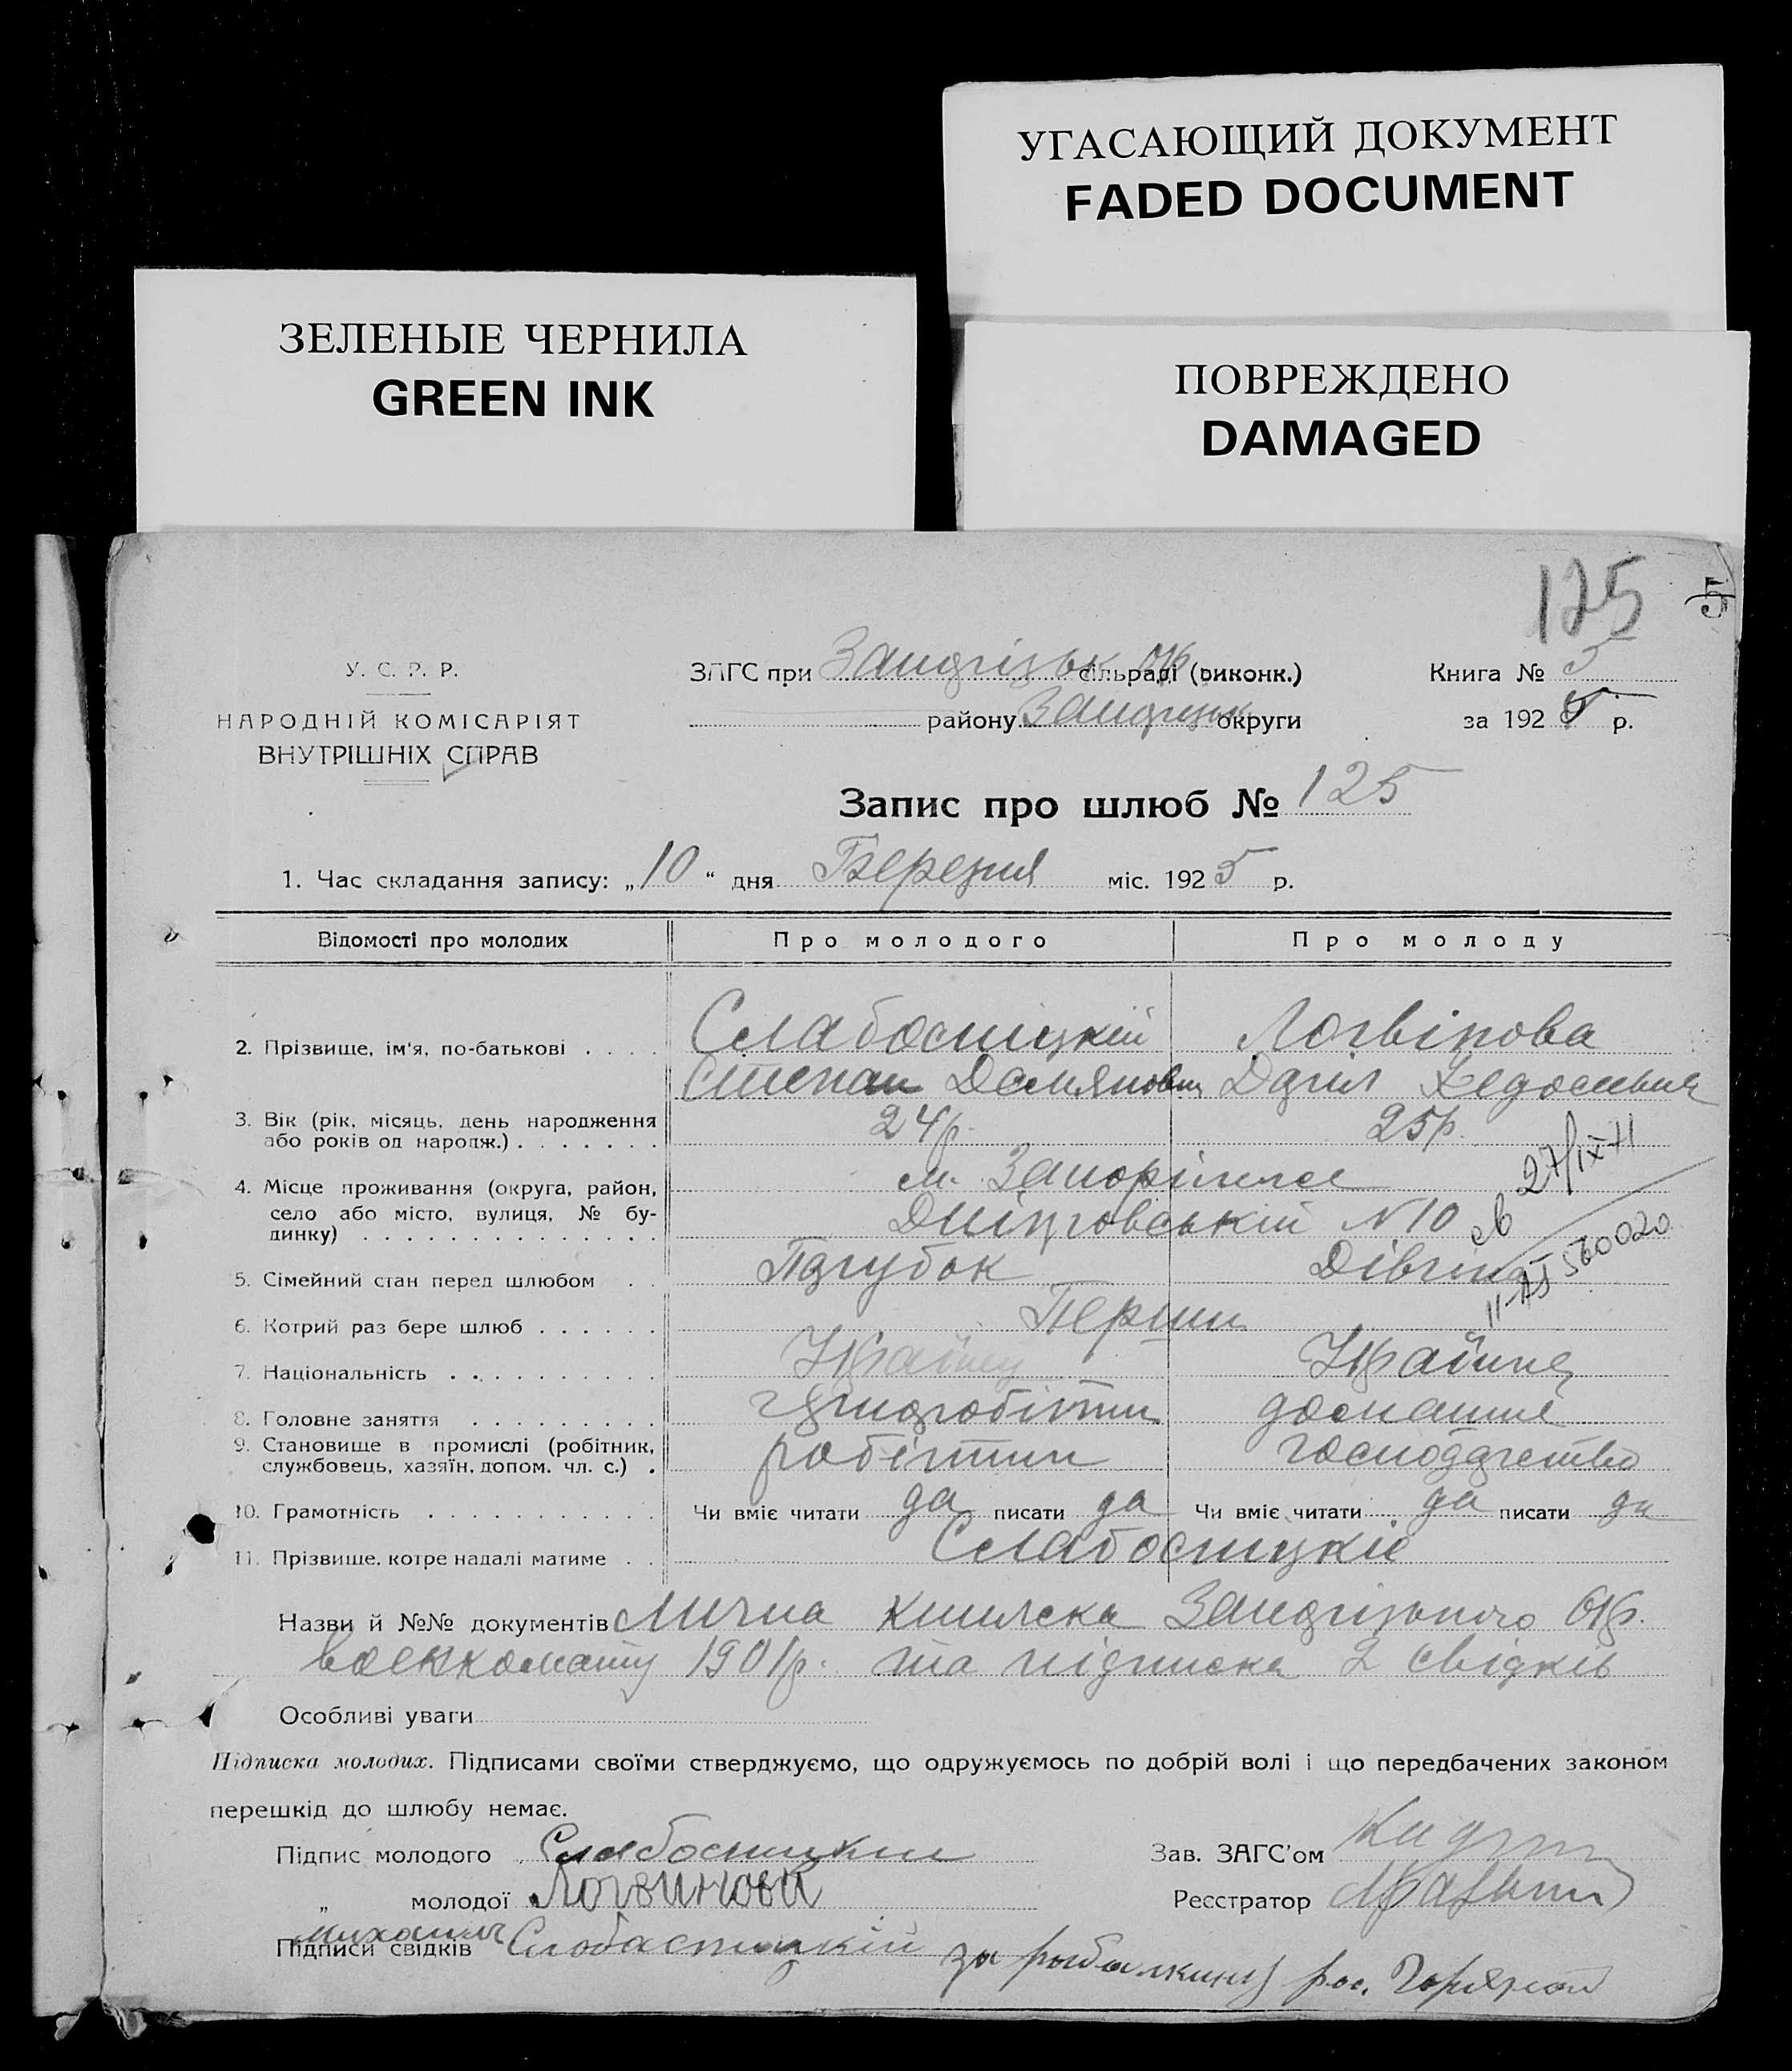 УГАСАЮЩИЙ ДОКУМЕНТ
FADED DOCUMENT
ЗЕЛЕНЫЕ ЧЕРНИЛА
GREEN INK
ПОВРЕЖДЕНО
DAMAGED
125
5
У. С. Р. Р.
НАРОДНІЙ КОМІСАРІЯТ
ВНУТРІШНІХ СПРАВ
ЗАГС при сільраді (виконк.)
району округи
Книга № 5
за 1925 р.
Запис про шлюб № 125
1. Час складання запису: „10“ дня Березня міс. 1925 р.
Відомості про молодих Про молодого Про молоду
2. Прізвище, ім'я, по-батькові Слабосницкій Логвінова
Степан Демянович Дарія Хедосевна
3. Вік (рік, місяць, день народження або років од народж.) 24р. 25р.
4. Місце проживання (округа, район, село або місто, вулиця, № будинку) м. Запоріжжє
Дніпровській N 10
св 27/IX-71
II-АЯ 560020
5. Сімейний стан перед шлюбом Парубок Дівчина
6. Котрий раз бере шлюб Перши
7. Національність Українец Українка
8. Головне заняття домашнє
9. Становище в промислі (робітник, службовець, хазяїн, допом. чл. с.) робітник господарство
10. Грамотність Чи вміє читати да писати да Чи вміє читати да писати да
11. Прізвище, котре надалі матиме Слабосницкіє
Назви й №№ документів Лична книжка Запорізького Окр.
воєнкомату 1901р. та підписка 2 свідків
Особливі уваги
Підписка молодих. Підписами своїми стверджуємо, що одружуємось по добрій волі і що передбачених законом
перешкід до шлюбу немає.
Підпис молодого Слабосницкий
Зав. ЗАГС'ом
„ молодої Логвинова
Реєстратор
Михаил
Підписи свідків Слобасницкій за рос.